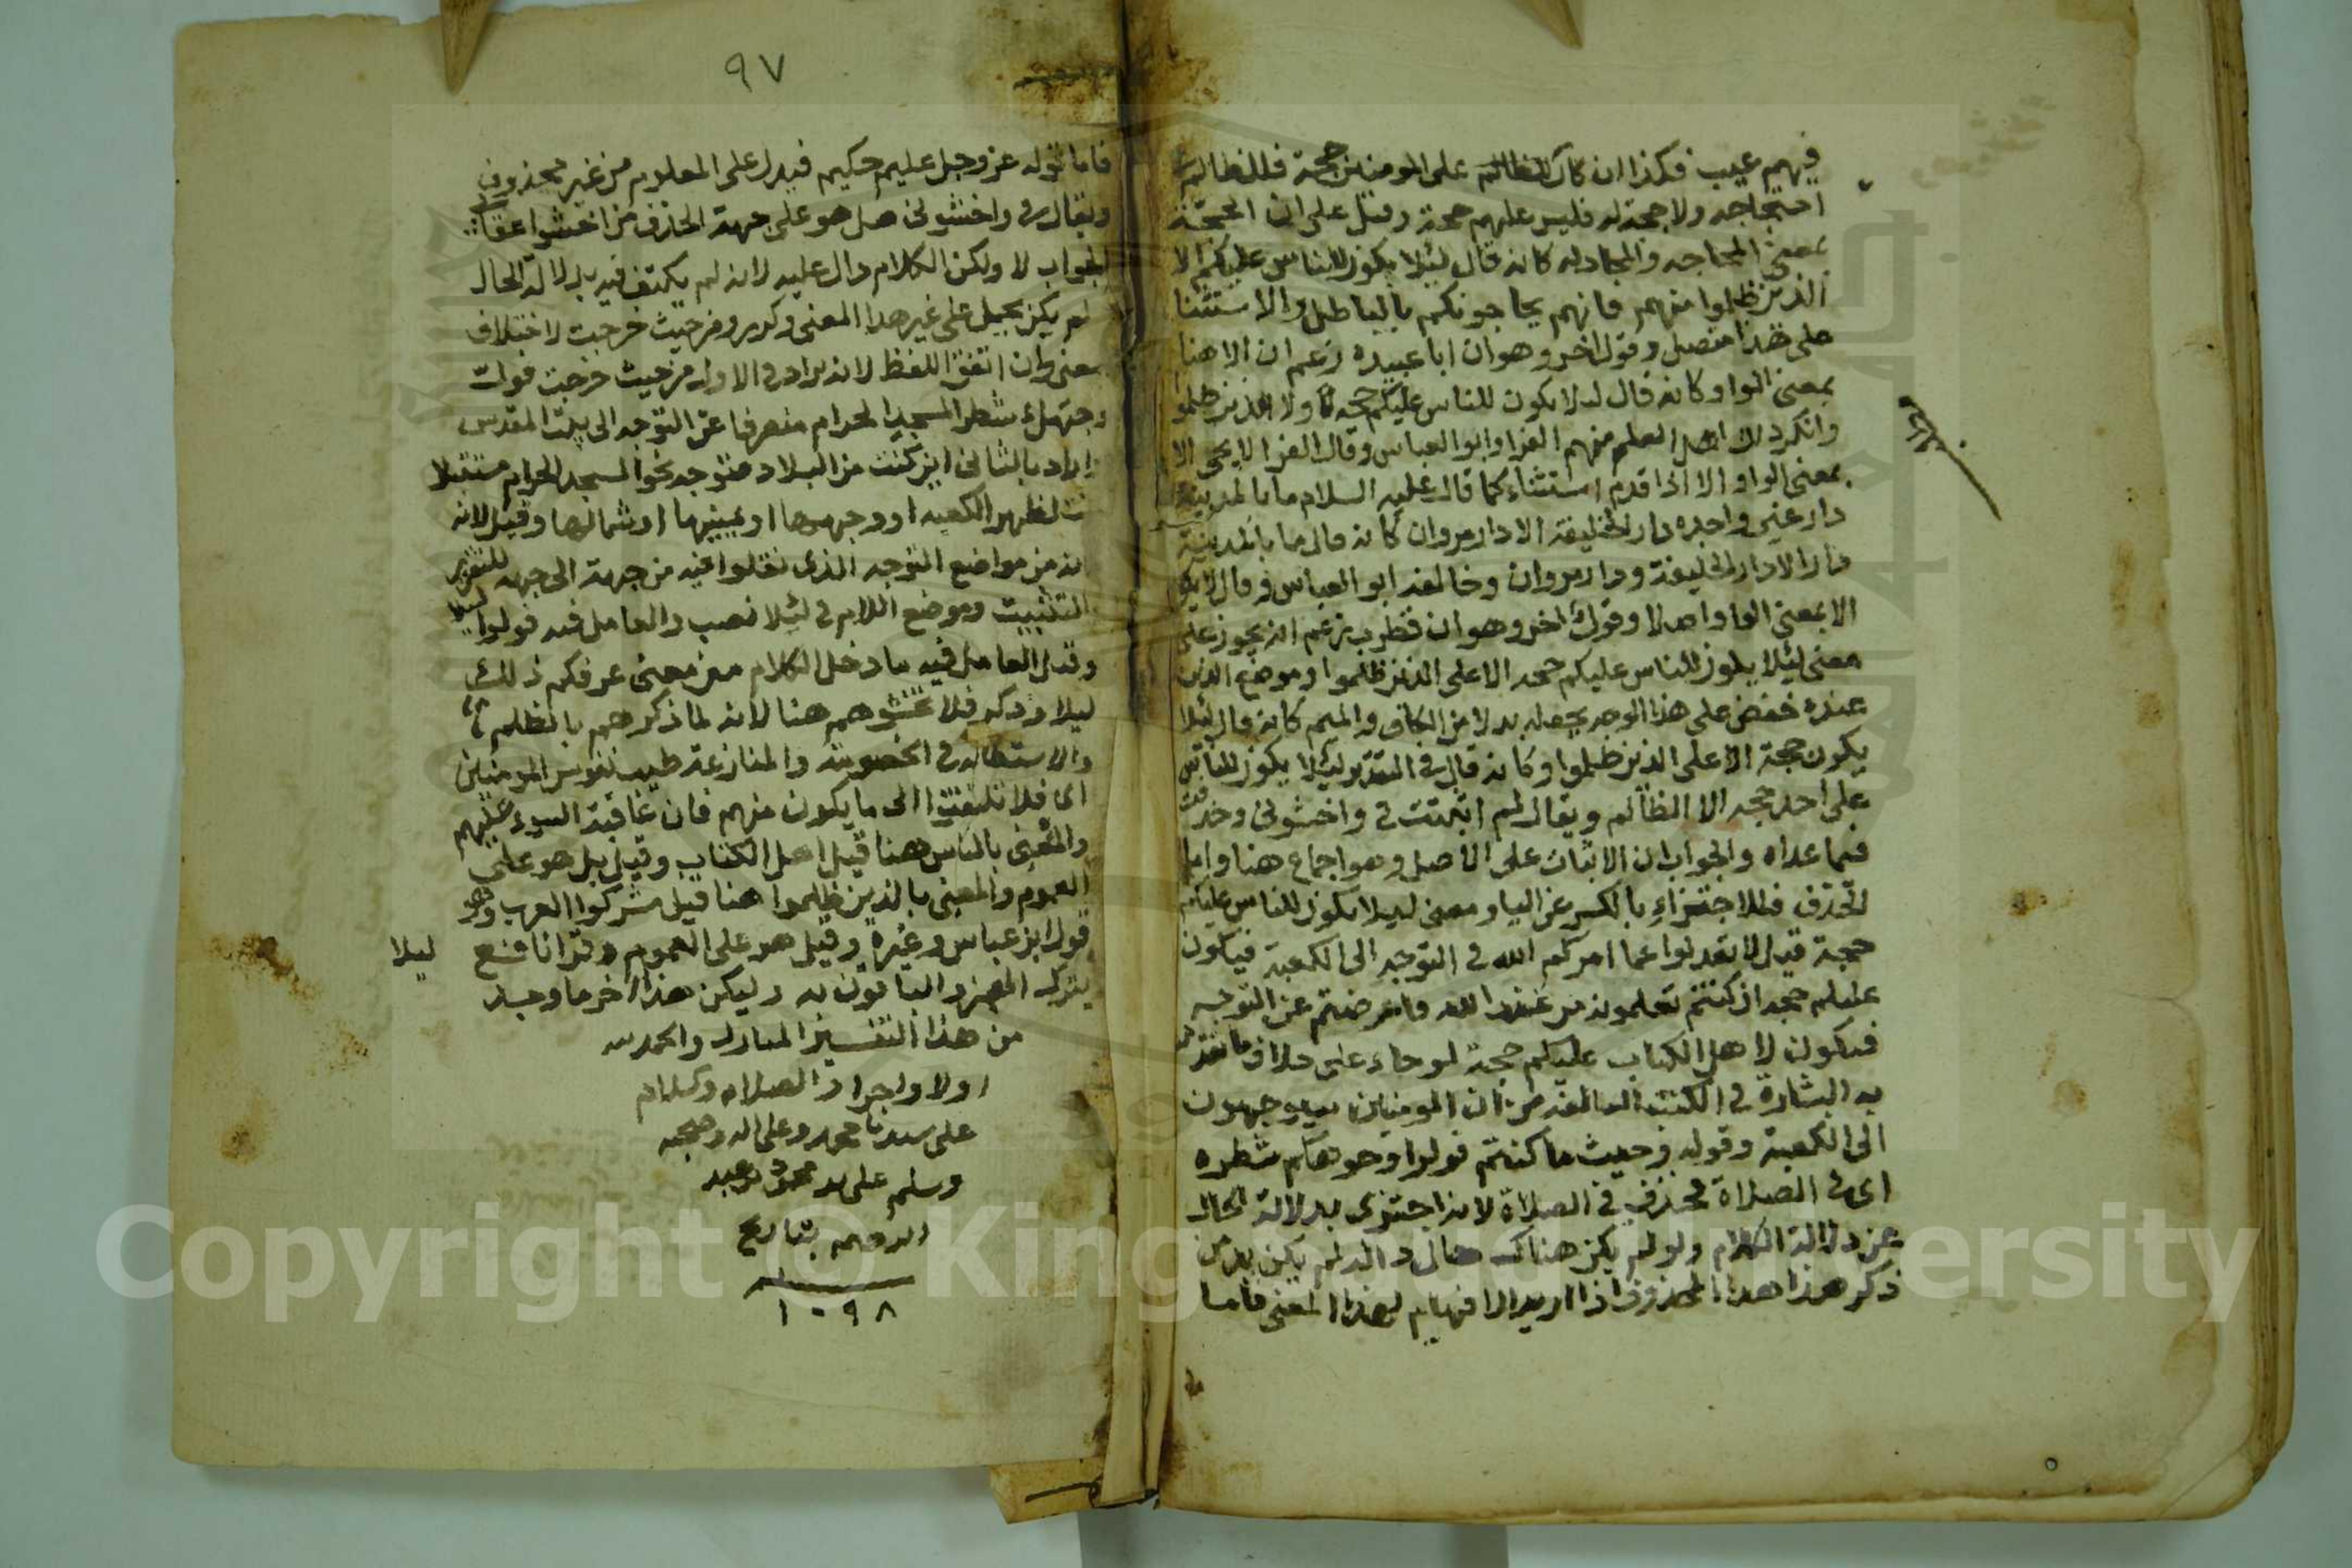 فيهم عيب فكذا ان كان للظالم على المومنين حجة فللظالم
احتجاجه ولا حجة له فليس عليهم حجة وقيل على ان الحجة
بمعنى المحاجه والمجادله كانه قال ليلا يكون للناس عليكم الا
الذين ظلموا منهم فانهم يحاجونكم بالباطل والاستثنا
على هذا متصل وقول اخر وهو ان ابا عبيده زعم ان الا هنا
بمعنى الواو كانه قال ليلا يكون للناس عليكم حجه ولا الذين ظلموا
وانكر ذلك اهل العلم منهم الفرا وابو العباس وقال الفرا لا يجى الا
بمعنى الواو الا اذا قدم استثناء كما قال عليه السلام ما بالمدينة
دار غير واحده دار الخليفة الا دار مروان كانه قال ما بالمدينة
دار الا دار الخليفة ودار مروان وخالفه ابو العباس وقال لا يكون
الا بمعنى الواو اصلا وقول اخر وهو ان قطرب زعم انه يجوز على
معنى ليلا يكون للناس عليكم حجه الا على الذين ظلموا وموضع الذين
عنده خفض على هذا الوجه يجعله بدلا من الكاف والميم كانه قال ليلا
يكون حجة الا على الذين ظلموا وكانه قال في التقدير ليلا يكون للناس
على احد حجه الا الظالم ويقال لم اثبتت في واخشوني وحذفت
فيما عداه والجواب ان الاثبات على الاصل وهو اجماع هنا واما
الحذف فللاجتزاء بالكسر عن اليا ومعنى ليلا يكون للناس عليكم
حجة قيل لا تعدلوا عما امركم الله في التوجه الى الكعبة فيكون
عليكم حجه ان كنتم تعلمونه من عند الله واعرضتم عن التوجه
فيكون لاهل الكتاب عليكم حجة لو جاء على خلاف ما تقدم
به البشارة في الكتب السالفة من ان المومنين سيوجهون
الى الكعبة وقوله وحيث ما كنتم فولوا وجوهكم شطره
اى في الصلاة محذوف في الصلاة لانه اجتزى بدلالة الحال
عن دلالة الكلام ولو لم يكن هناك حال دالة لم يكن بد من
ذكر هذا المحذوف اذا اريد الافهام لهذا المعنى فاما
٩٧
فاما قوله عز وجل عليم حكيم فيدل على المعلوم من غير محذوف
ويقال في واخشوني هل هو على جهة الحذف من اخشوا
الجواب لا ولكن الكلام دال عليه لانه لم يكتف فيه بدلالة الحال
لم يكن يحيل على غير هذا المعنى وكرر ومن حيث خرجت لاختلاف
معنى وان اتفق اللفظ لانه يراد في الاول من حيث خرجت فول
وجهك شطر المسجد الحرام منصرفا عن التوجه الى بيت المقدس
واراد بالثاني اين كنت من البلاد فتوجه نحو المسجد الحرام مستقبلا
كنت لظهر الكعبه او وجهها او يمينها او شمالها وقيل لانه
انه من مواضع التوجه الذى نقلوا فيه من جهة الى جهه للتقرير
والتثبيت وموضع اللام في لئلا نصب والعامل فيه فولوا
وقيل العامل فيه ما دخل الكلام من معنى عرفكم ذلك
ليلا وذكر فلا تخشوهم هنا لانه لما ذكرهم بالظلم
والاستطاله في الخصومة والمنازعة طيب نفوس المومنين
اى فلا تلتفتوا الى ما يكون منهم فان عاقبة السوء عليهم
والمعنى بالناس هنا قيل اهل الكتاب وقيل بل هو على
العموم والمعنى بالذين ظلموا هنا قيل مشركوا العرب وهو
قول ابن عباس وغيره وقيل هو على العموم وقرا نافع ليلا
بترك الهمز والباقون به وليكن هذا اخر ما وجد
من هذا التفسير المبارك والحمد لله
اولا واخرا والصلاه وسلام
على سيدنا محمد وعلى اله وصحبه
وسلم على يد محمود بن عبد
بتاريخ
١٠٩٨
Copyright © King Saud University